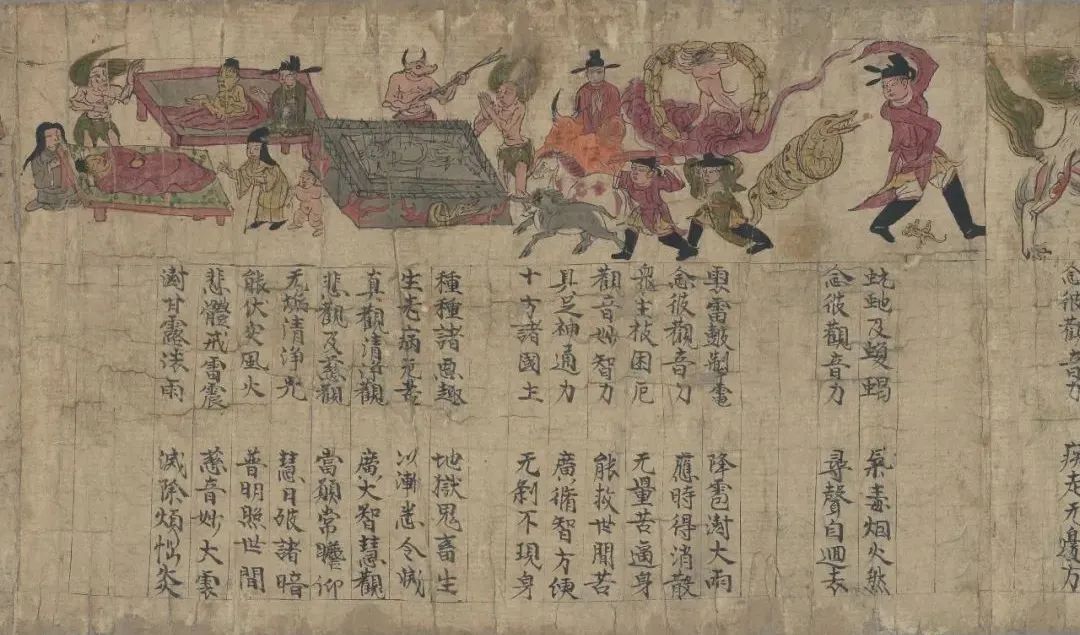 念彼觀音力 疾走无邊方
蚖虵及蝮蝎 氣毒烟火然
念彼觀音力 尋聲自迴去
雲雷皷掣電 降雹澍大雨
念彼觀音力 應時得消散
衆生被困厄 无量苦逼身
觀音妙智力 能救世間苦
具足神通力 廣脩智方便
十方諸國土 无剎不現身
種種諸悪趣 地獄鬼畜生
生老病死苦 以漸悉令滅
真觀清淨觀 廣大智慧觀
悲觀及慈觀 當願常瞻仰
无垢清淨光 慧日破諸暗
能伏灾風火 普明照世間
悲體戒雷震 慈音妙大雲
澍甘露法雨 滅除煩惱炎